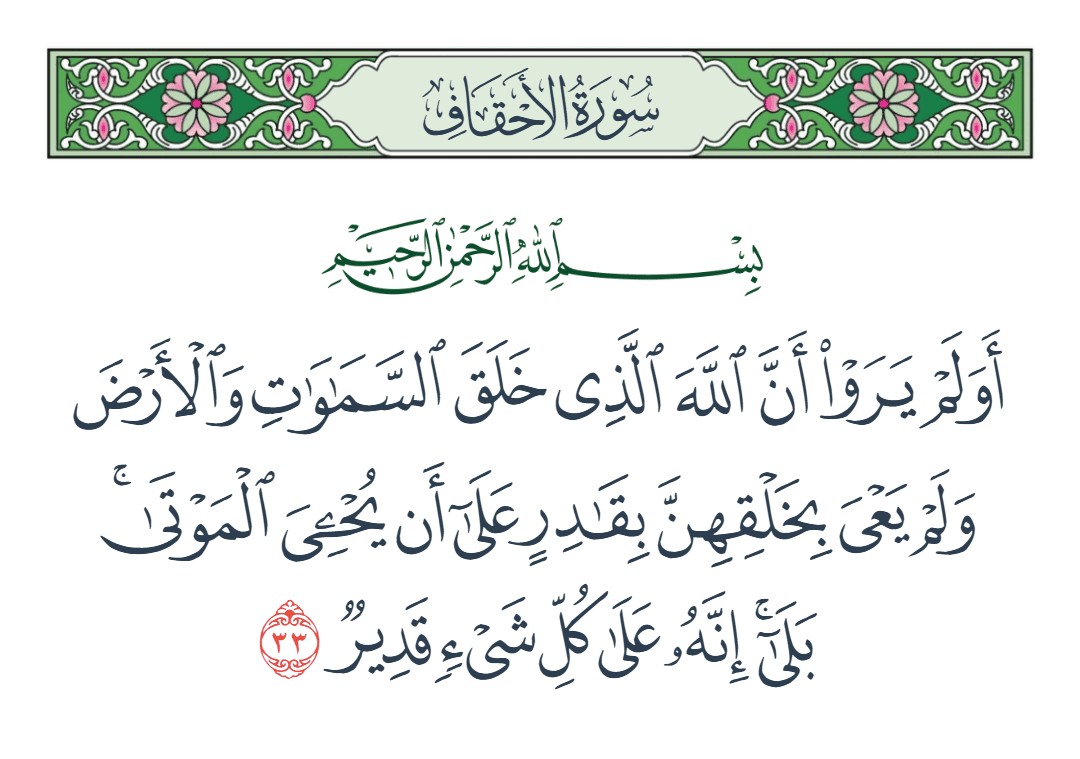 سُورَةُ الأَحْقَافِ
بِسْمِ ٱللَّهِ ٱلرَّحْمَٰنِ ٱلرَّحِيمِ
أَوَلَمْ يَرَوْا۟ أَنَّ ٱللَّهَ ٱلَّذِى خَلَقَ ٱلسَّمَـٰوَٰتِ وَٱلْأَرْضَ
وَلَمْ يَعْىَ بِخَلْقِهِنَّ بِقَـٰدِرٍ عَلَىٰٓ أَن يُحْـِۧىَ ٱلْمَوْتَىٰ ۚ
بَلَىٰٓ ۚ إِنَّهُۥ عَلَىٰ كُلِّ شَىْءٍ قَدِيرٌ ٣٣